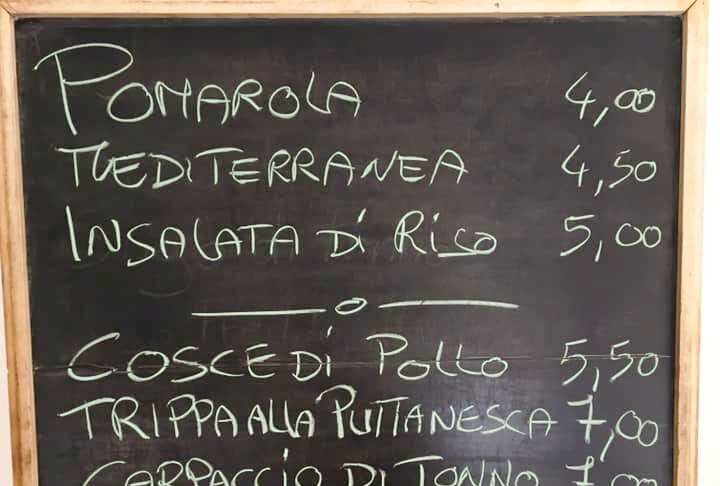 POMAROLA 4,00
MEDITERRANEA 4,50
INSALATA Di RiSO 5,00
COSCE Di POLLO 5,50
TRIPPA ALLA PUTTANESCA 7,00
CARPACCIO DI TONNO 7,00